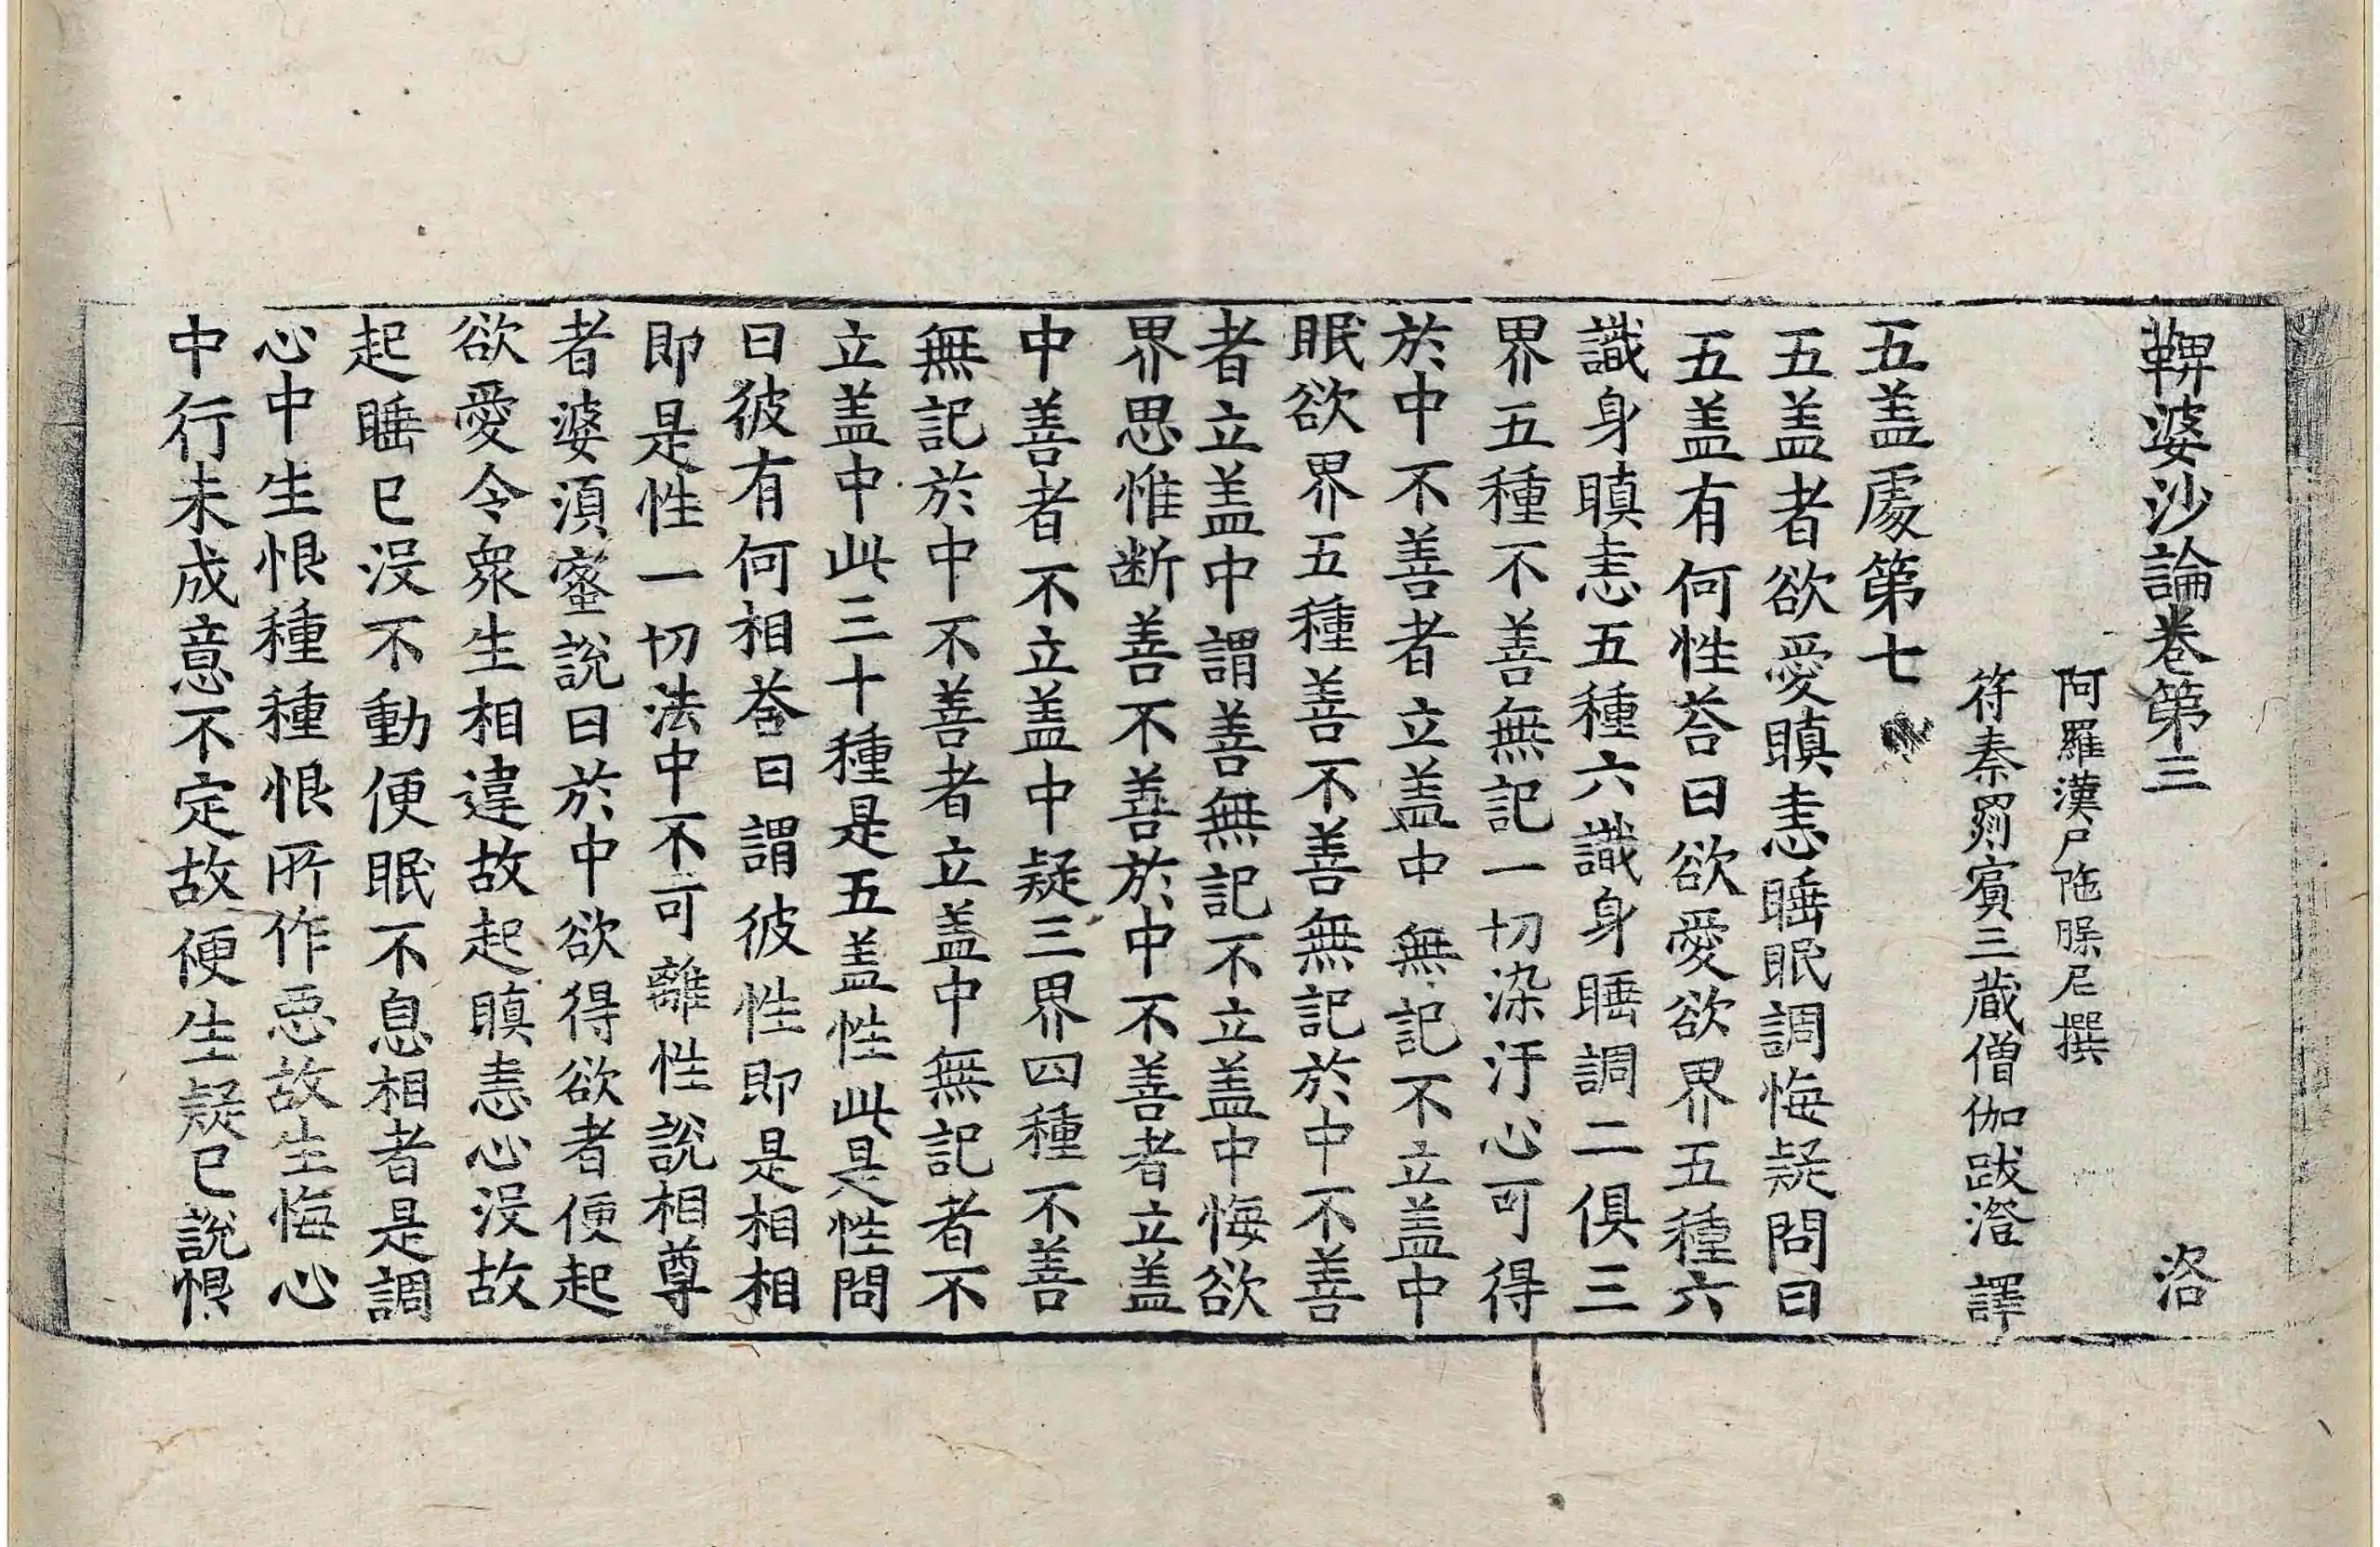 鞞婆沙論卷第三 洛
阿羅漢尸陁槃尼撰
符秦罽賓三藏僧伽跋澄 譯
五盖䖏第七
五盖者欲愛瞋恚睡眠調悔疑問曰
五盖有何性荅曰欲愛欲界五種六
識身瞋恚五種六識身睡調二俱三
界五種不善無記一切染汙心可得
於中不善者立盖中無記不立盖中
眠欲界五種善不善無記於中不善
者立盖中謂善無記不立盖中悔欲
界思惟断善不善於中不善者立盖
中善者不立盖中疑三界四種不善
無記於中不善者立盖中無記者不
立盖中此三十種是五盖性此是性問
曰彼有何相荅曰謂彼性即是相相
即是性一切法中不可離性說相尊
者婆湏蜜說曰於中欲得欲者便起
欲愛令衆生相違故起瞋恚心没故
起睡已没不動便眠不息相者是調
心中生恨種種恨所作惡故生悔心
中行未成意不定故便生疑已說惧